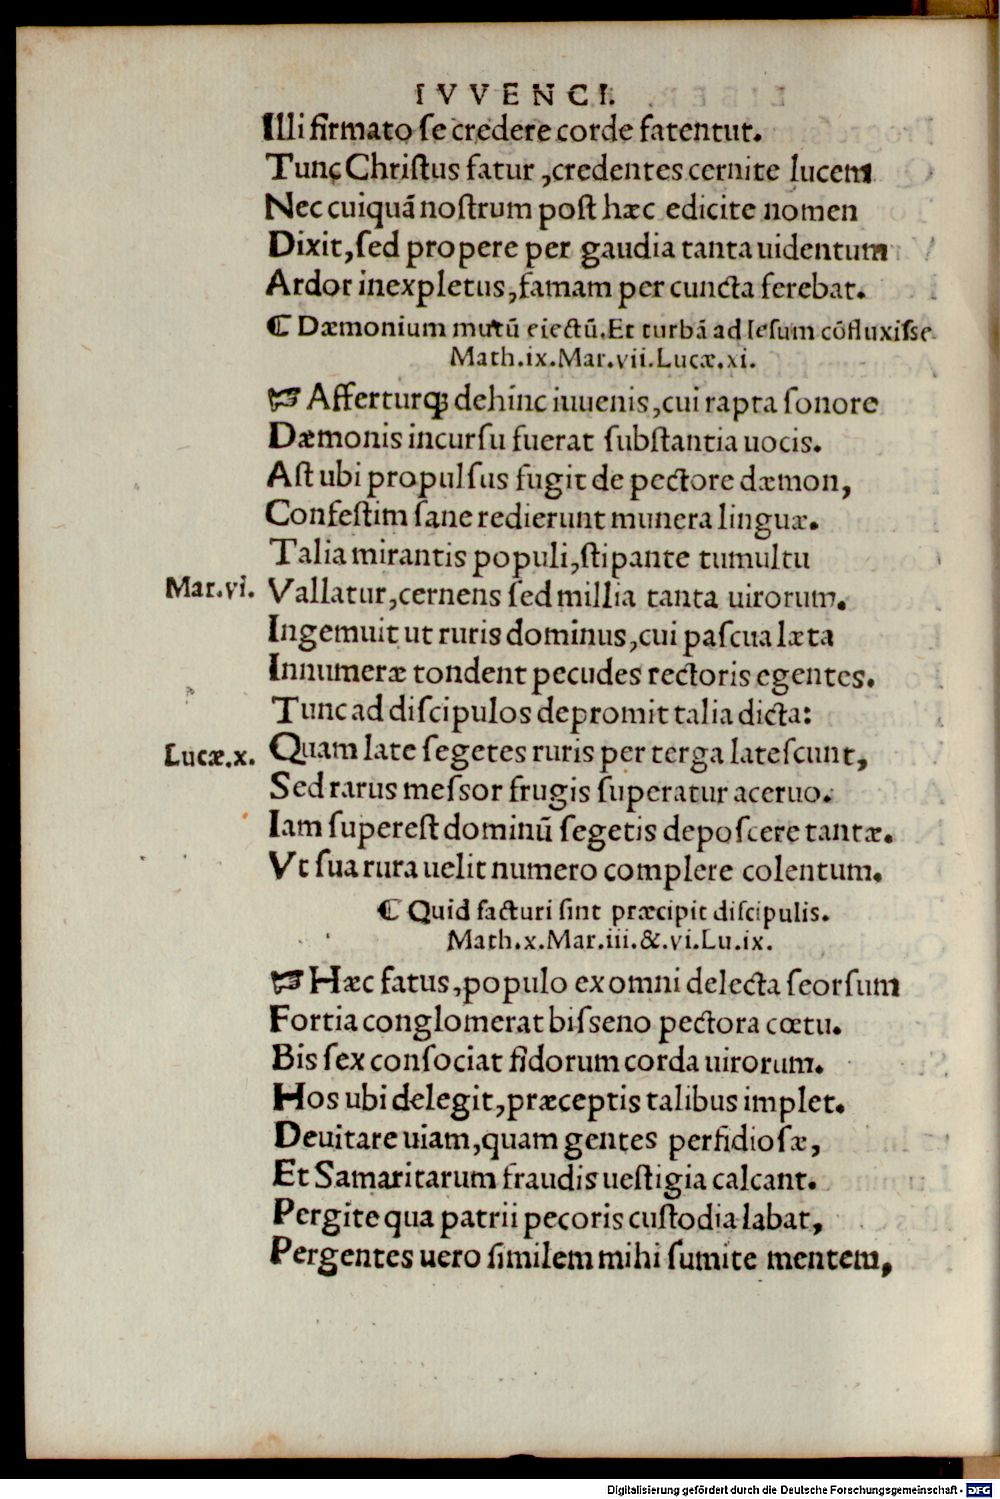 IVVENCI.
Illi firmato se credere corde fatentut.
Tunc Christus fatur, credentes cernite lucem
Nec cuiquã nostrum post hæc edicite nomen
Dixit, sed propere per gaudia tanta uidentum
Ardor inexpletus, famam per cuncta ferebat.
⸿ Dæmonium mutũ eiectũ. Et turbã ad Iesum cõfluxisse
Math.ix.Mar.vii.Lucæ.xi.
☞ Afferturqꝫ dehinc iuuenis, cui rapta sonore
Dæmonis incursu fuerat substantia uocis.
Ast ubi propulsus fugit de pectore dæmon,
Confestim sane redierunt munera linguæ.
Talia mirantis populi, stipante tumultu
Mar.vi. Vallatur, cernens sed millia tanta uirorum.
Ingemuit ut ruris dominus, cui pascua læta
Innumeræ tondent pecudes rectoris egentes.
Tunc ad discipulos depromit talia dicta:
Lucæ.x. Quam late segetes ruris per terga latescunt,
Sed rarus messor frugis superatur aceruo.
Iam superest dominũ segetis deposcere tantæ.
Vt sua rura uelit numero complere colentum.
⸿ Quid facturi sint præcipit discipulis.
Math.x.Mar.iii.&.vi.Lu.ix.
☞ Hæc fatus, populo ex omni delecta seorsum
Fortia conglomerat bisseno pectora cœtu.
Bis sex consociat fidorum corda uirorum.
Hos ubi delegit, præceptis talibus implet.
Deuitare uiam, quam gentes perfidiosæ,
Et Samaritarum fraudis uestigia calcant.
Pergite qua patrii pecoris custodia labat,
Pergentes uero similem mihi sumite mentem,
Digitalisierung gefördert durch die Deutsche Forschungsgemeinschaft - DFG